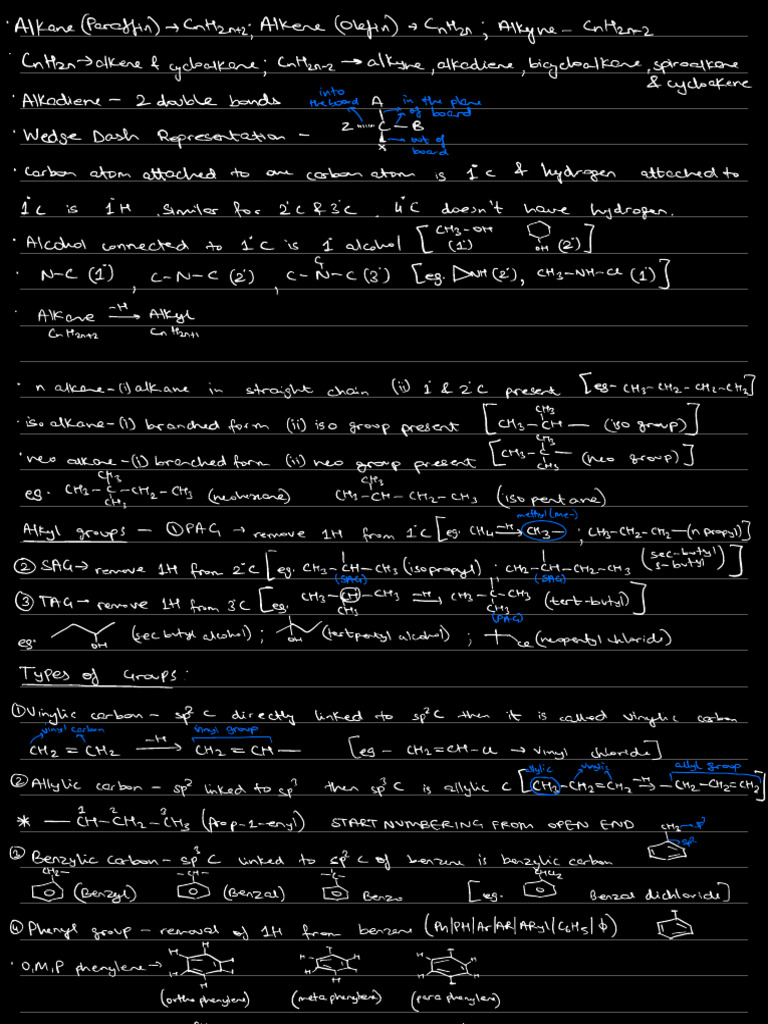 · Alkane (Paraffin) → CnH2n+2 ; Alkene (Olefin) → CnH2n ; Alkyne – CnH2n-2
· CnH2n → alkene & cycloalkane ; CnH2n-2 → alkyne, alkadiene, bicycloalkane, spiroalkane
& cycloalkene
· Alkadiene – 2 double bonds
into the board
A
in the plane of board
· Wedge Dash Representation –
Z C – B
X
out of board
· Carbon atom attached to one carbon atom is 1°C & hydrogen attached to
1°C is 1°H. Similar for 2°C & 3°C. 4°C doesn't have hydrogen.
· Alcohol connected to 1°C is 1° alcohol [CH3-OH (1°) OH (2°)]
· N-C (1°) , C-N-C (2°) , C-N-C (3°) [eg. NH (2°), CH3-NH-Cl (1°)]
C
· Alkane -H→ Alkyl
CnH2n+2 CnH2n+1
· n alkane – (i) alkane in straight chain (ii) 1° & 2°C present [eg- CH3-CH2-CH2-CH3]
· iso alkane – (i) branched form (ii) iso group present [CH3-CH- (iso group)]
CH3
· neo alkane – (i) branched form (ii) neo group present [CH3-C- (neo group)]
CH3
CH3
eg. CH3-C-CH2-CH3 (neohexane) CH3-CH-CH2-CH3 (iso pentane)
CH3
CH3
CH3
Alkyl groups – ① PAG → remove 1H from 1°C [eg. CH4 -H→ CH3- ; CH3-CH2-CH2-(n propyl)]
methyl (me-)
② SAG → remove 1H from 2°C [eg. CH3-CH-CH3 (isopropyl) . CH3-CH-CH2-CH3 (sec-butyl) s-butyl]
(SAG) (SAG)
③ TAG → remove 1H from 3°C [eg. CH3-CH-CH3 -H→ CH3-C-CH3 (tert-butyl)]
CH3 CH3
(PAG)
eg. OH (sec butyl alcohol) ; OH (tert pentyl alcohol) ; ce (neopentyl chloride)
Types of Groups:
① Vinylic carbon – sp2 C directly linked to sp2 C then it is called vinylic carbon
vinyl carbon vinyl group
CH2=CH2 -H→ CH2=CH- [eg - CH2=CH-Cl → vinyl chloride]
② Allylic carbon – sp2 linked to sp3 then sp3 C is allylic C [CH2-CH2=CH2 -H→ -CH2-CH2=CH2]
allylic vinylic allyl group
* -CH-CH2-CH3 (prop-1-enyl) START NUMBERING FROM OPEN END
1 2 3
CH2 → sp3
sp2
③ Benzylic carbon – sp3 C linked to sp2 C of benzene is benzylic carbon
CH2- -CH- -C- CHCl2
(Benzyl) (Benzal) Benzo [eg. Benzal dichloride]
④ Phenyl group – removal of 1H from benzene (Ph|PH|Ar|AR|ARyl|C6H5|ϕ)
· O,M,P phenylene →
H H H H
(ortho phenylene) (meta phenylene) (para phenylene)